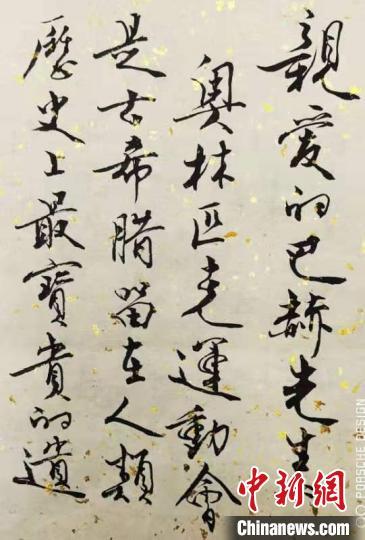 親愛的巴赫先生:
奧林匹克運動會
是古希腊留在人類
歷史上最寶貴的遺
PORSCHE DESIGN
中新网
Chinanews.com